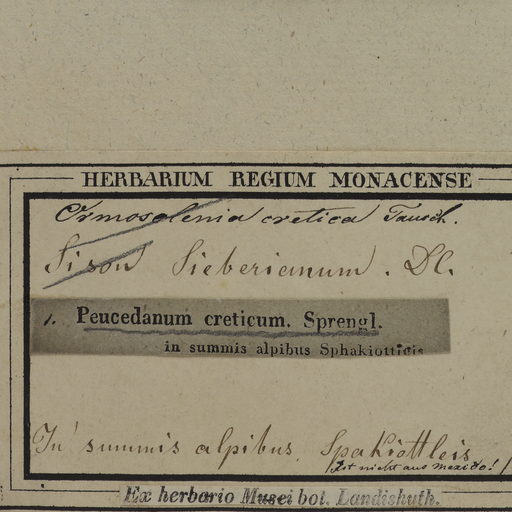 HERBARIUM REGIUM MONACENSE
Ormosolenia cretica Tausch.
Sison Sieberianum. Dl.
1. Peucedanum creticum. Sprengl.
in summis alpibus Sphakiotticis
In summis alpibus Spakiottleis
Ist nicht aus Mexico!
Ex herbario Musei bot. Landishuth.